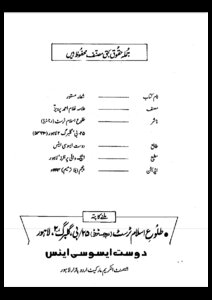 جملہ حقوق بحق مصنف محفوظ ہیں
نام کتاب شعلہ مستور
مصنف علامہ غلام احمد پرویز
ناشر طلوع اسلام ٹرسٹ (رجسٹرڈ)
۲۵۔بی، گلبرگ ۲ لاہور
طابع دوست ایسوسی ایٹس
مطبع
ایڈیشن
ملنے کا پتہ
طلوع اسلام ٹرسٹ (رجسٹرڈ) ۲۵/بی، گلبرگ ۲، لاہور
دوست ایسوسی ایٹس
الکریم مارکیٹ اردو بازار لاہور